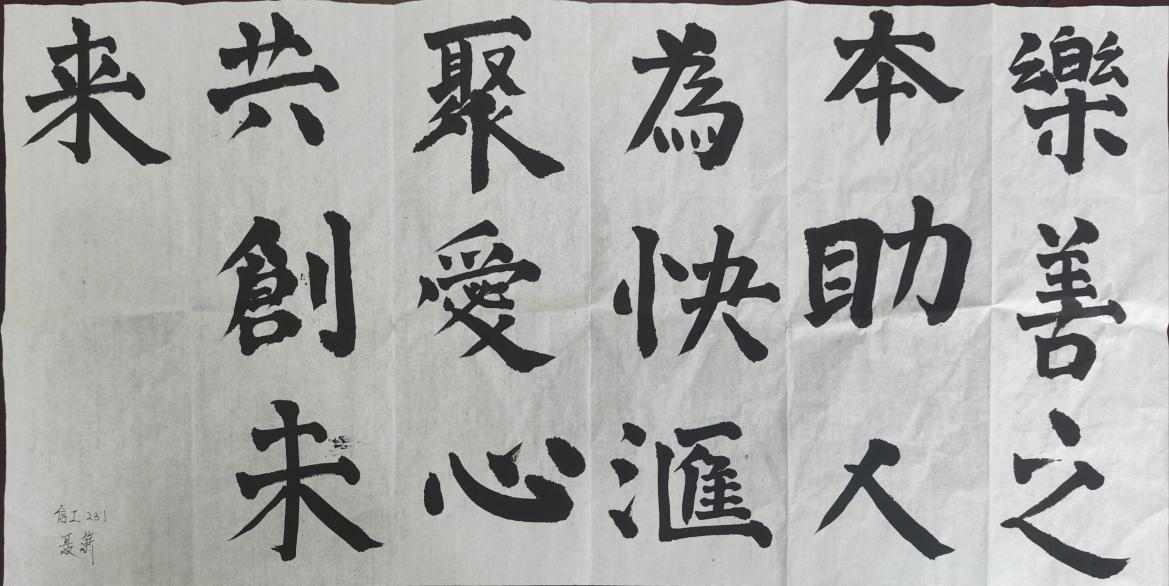 樂善之
本助人
為快滙
聚愛心
共創未
来
信工231
聂箫